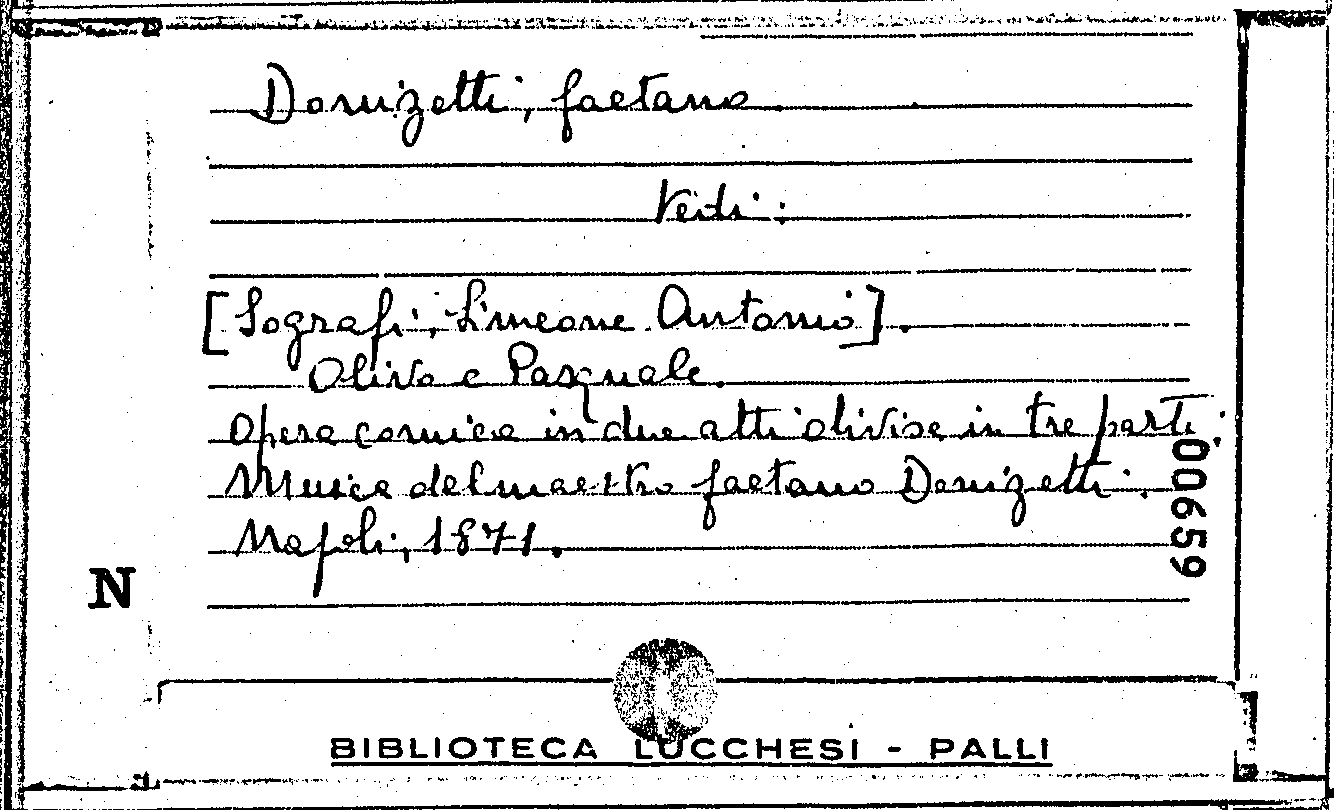 Donizetti, Gaetano
Vedi:
[Sografi, Simeone Antonio].
Olivo e Pasquale.
Opera comica in due atti divisa in tre parti.
Musica del maestro Gaetano Donizetti.
Napoli, 1871.
00659
N
BIBLIOTECA LUCCHESI - PALLI